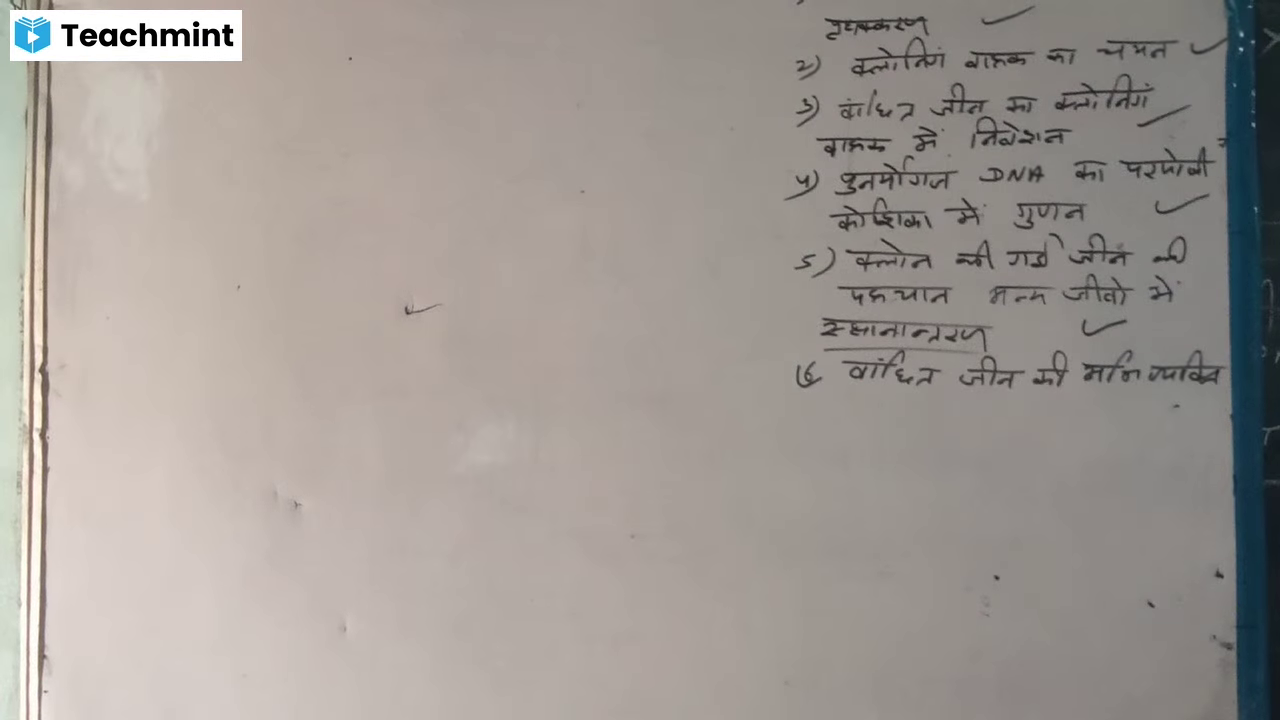 Teachmint
पृथक्करण
2) क्लोनिंग वाहक का चयन
3) वांछित जीन का क्लोनिंग
वाहक में निवेशन
4) पुनर्योगज DNA का परपोषी
कोशिका में गुणन
5) क्लोन की गई जीन की
पहचान अन्य जीवो में
स्थानान्तरण
6 वांछित जीन की अभिव्यक्ति